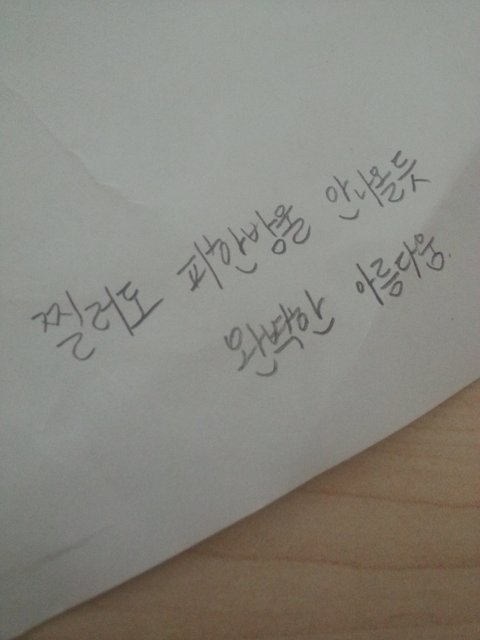 찔러도 피한방울 안나올듯
완벽한 아름다움.